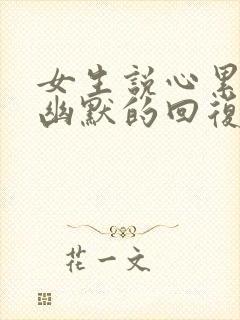 女生說心累
幽默的回復
花一文